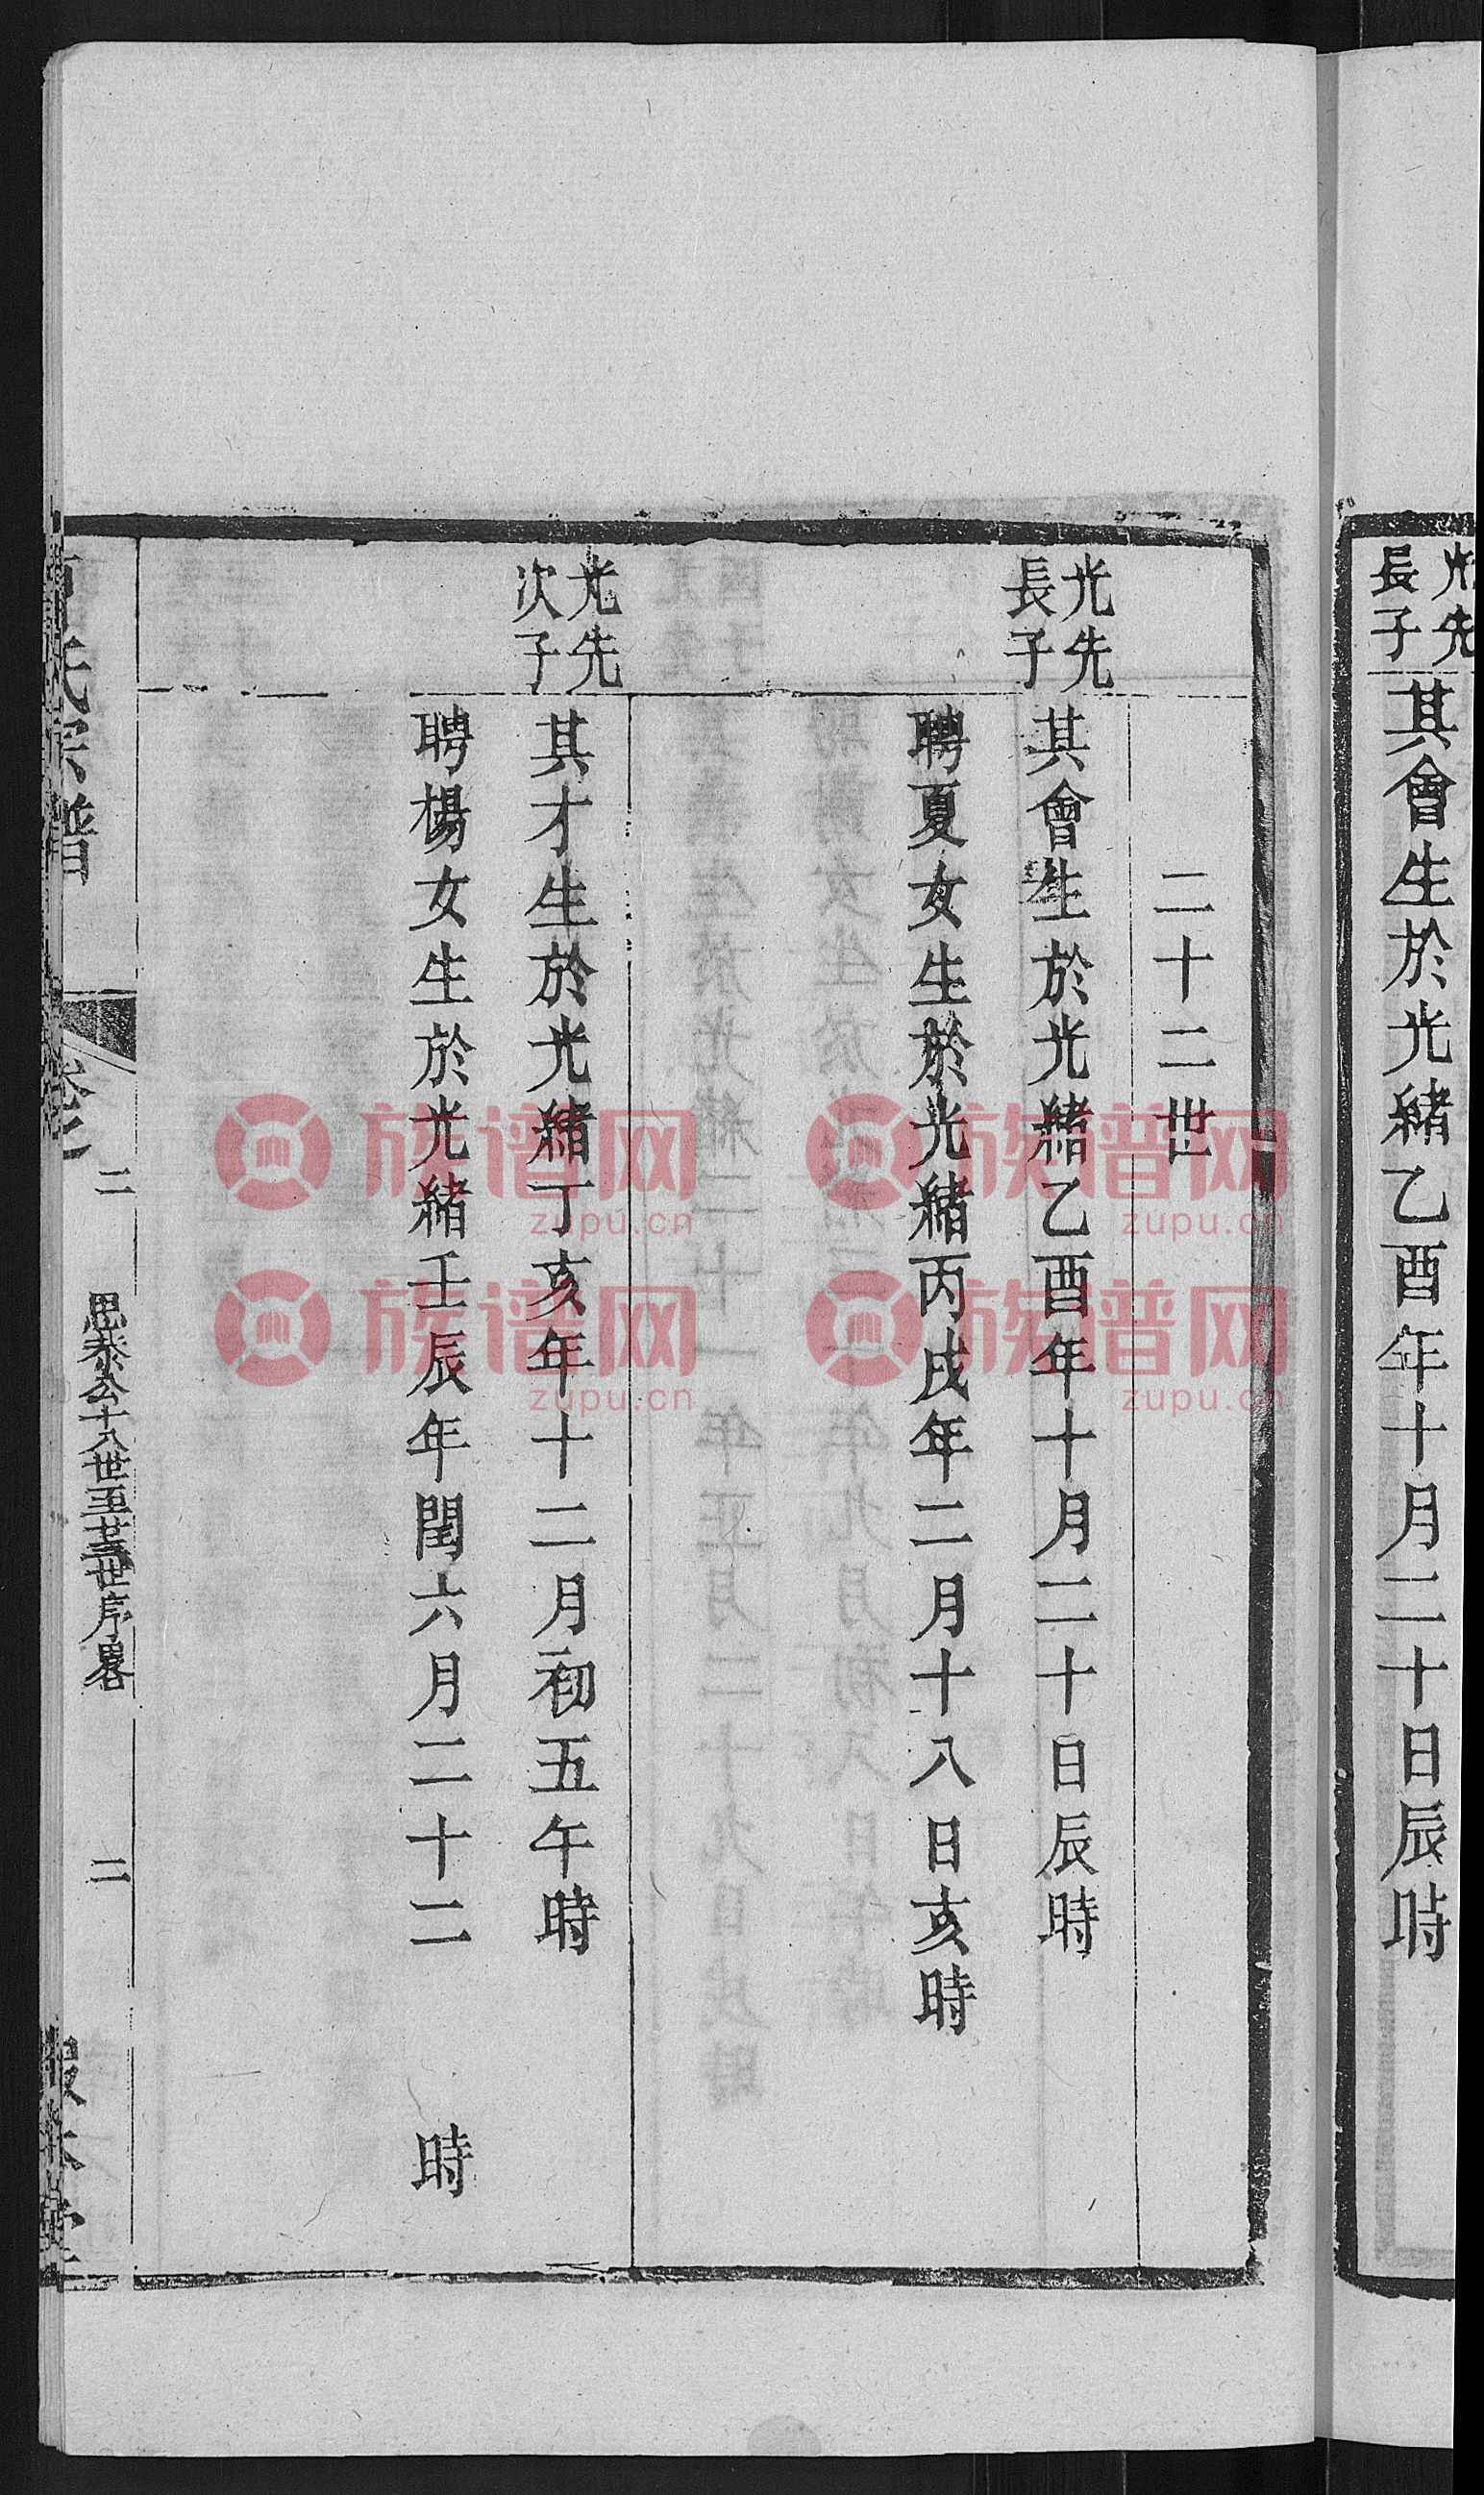 光先
長子
其會生於光緒乙酉年十月二十日辰時
二十二世
光先
長子
其會生於光緒乙酉年十月二十日辰時
聘夏女生於光緒丙戌年二月十八日亥時
光先
次子
其才生於光緒丁亥年十二月初五午時
聘楊女生於光緒壬辰年閏六月二十二 時
氏宗譜
卷之
二
思泰公十八世至廿三世序畧
二
族谱网
zupu.cn
族谱网
zupu.cn
族谱网
zupu.cn
族谱网
zupu.cn